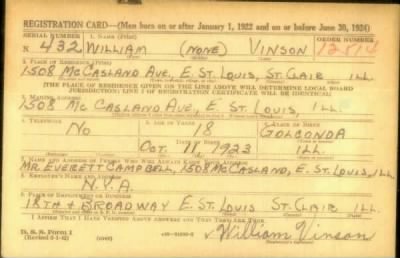 REGISTRATION CARD—(Men born on or after January 1, 1922 and on or before June 30, 1924)
SERIAL NUMBER 1. NAME (Print) ORDER NUMBER
N 432 WILLIAM (NONE) VINSON 12514
2. PLACE OF RESIDENCE (Print)
1508 McCASLAND AVE., E. ST. LOUIS, ST. CLAIR ILL
[THE PLACE OF RESIDENCE GIVEN ON THE LINE ABOVE WILL DETERMINE LOCAL BOARD
JURISDICTION; LINE 2 OF REGISTRATION CERTIFICATE WILL BE IDENTICAL]
3. MAILING ADDRESS
1508 Mc CASLAND AVE., E. ST. LOUIS, ILL.
4. TELEPHONE 5. AGE IN YEARS 6. PLACE OF BIRTH
NO 18 GOLCONDA
OCT. 11, 1923 ILL.
7. NAME AND ADDRESS OF PERSON WHO WILL ALWAYS KNOW YOUR ADDRESS
MR. EVERETT CAMPBELL, 1508 McCASLAND, E. ST. LOUIS, ILL
8. EMPLOYER'S NAME AND ADDRESS
N.Y.A.
9. PLACE OF EMPLOYMENT OR BUSINESS
18TH & BROADWAY E. ST. LOUIS ST. CLAIR ILL
I AFFIRM THAT I HAVE VERIFIED ABOVE ANSWERS AND THAT THEY ARE TRUE.
D. S. S. Form 1
William Vinson